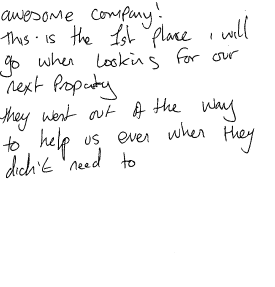 awesome company!
This is the 1st place i will
go when looking for our
next Property
they went out of the way
to help us even when they
didn't need to